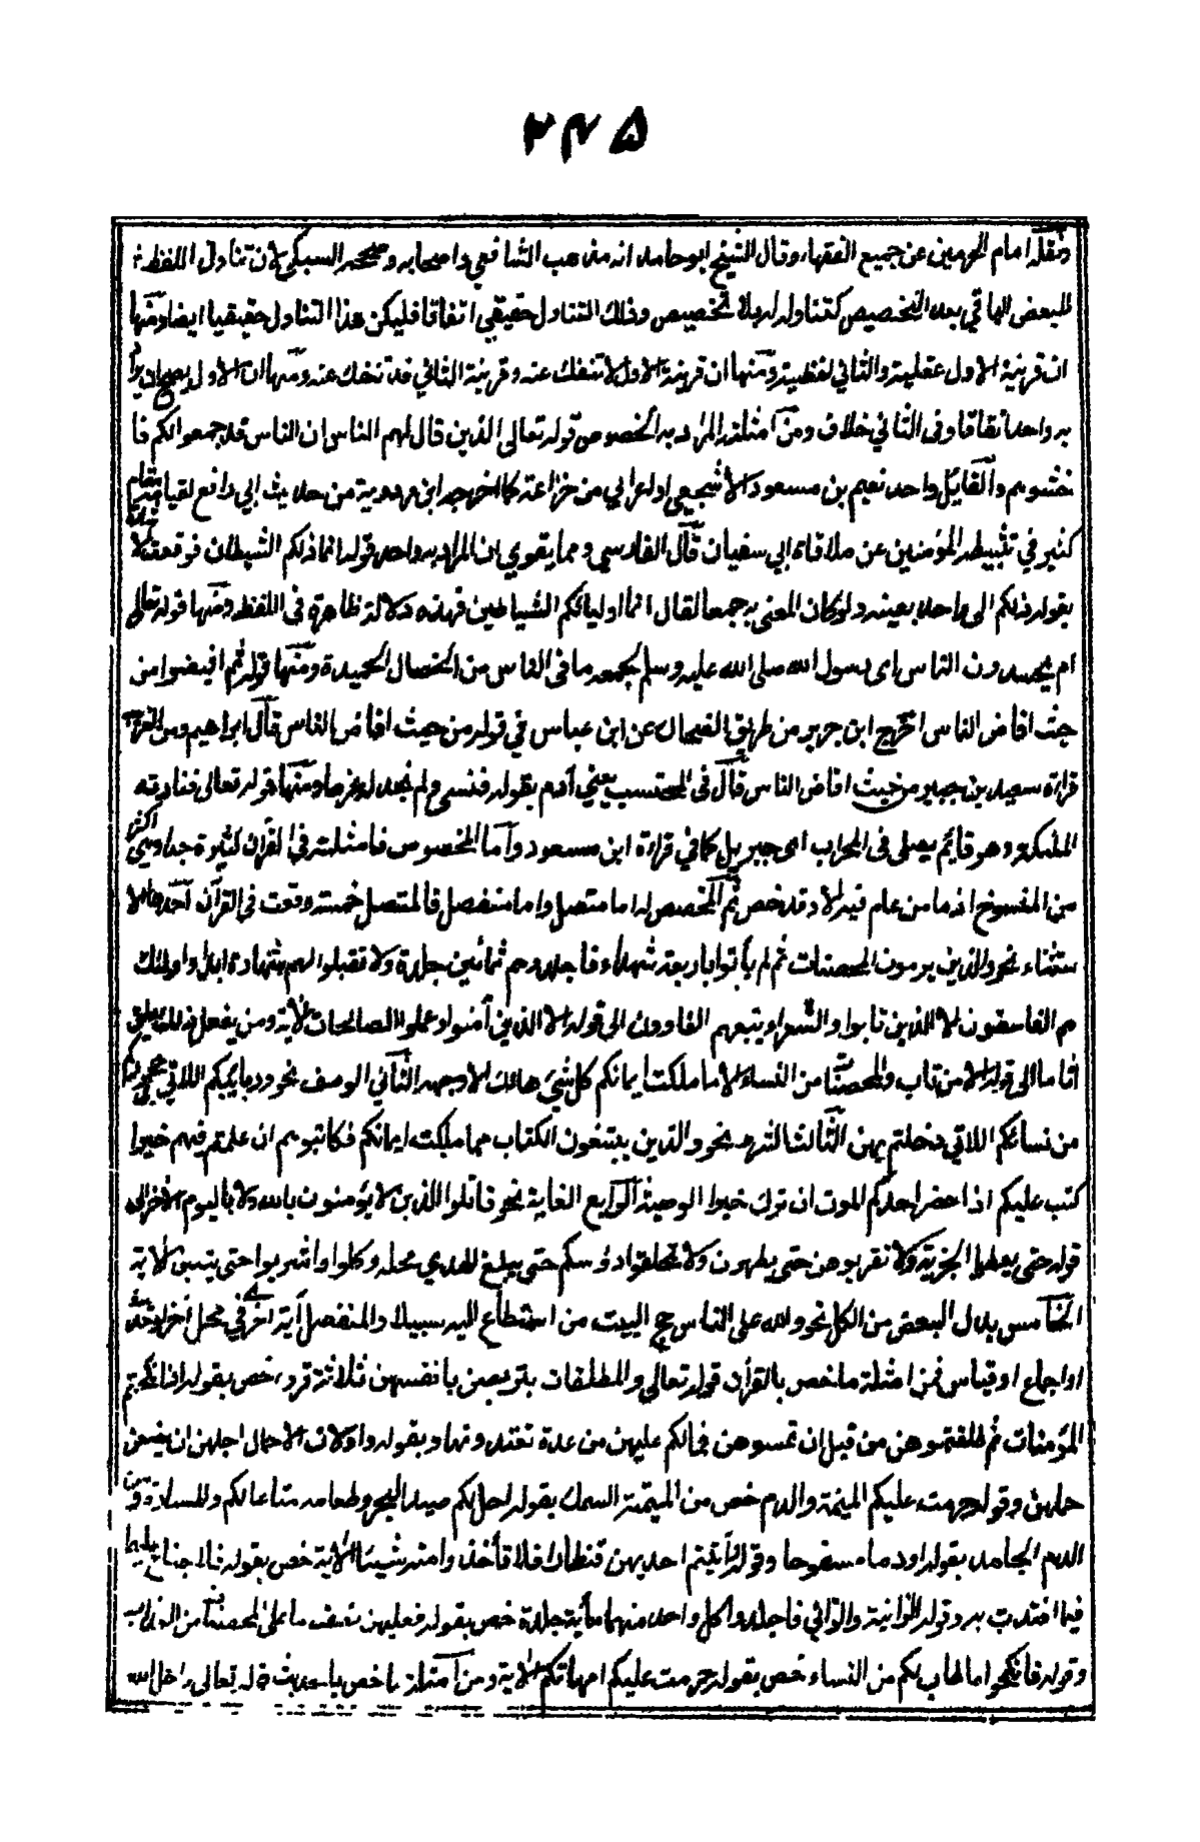 ۲۴۵
ونقله امام الحرمين عن جميع الفقهاء وقال الشيخ ابو حامد انه مذهب الشافعي واصحابه وصححه السبكي لان تناول اللفظ
للبعض الباقي بعد التخصيص كتناوله له بلا تخصيص وذلك التناول حقيقي اتفاقا فليكن هذا التناول حقيقيا ايضا ومنها
ان قرينة الاول عقلية والثاني لفظية ومنها ان قرينة الاول لا تنفك عنه وقرينة الثاني قد تنفك عنه ومنها ان الاول يصح ان يراد
به واحد اتفاقا وفى الثاني خلاف ومن امثلة المراد به الخصوص قوله تعالى الذين قال لهم الناس ان الناس قد جمعوا لكم فا
خشوهم والقائل واحد نعيم بن مسعود الاشجعي او اعرابي من خزاعة كما اخرجه ابن مردوية من حديث ابي رافع لقيامه مقام
كثير في تثبيطه المؤمنين عن ملاقاة ابي سفيان قال الفارسي ومما يقوي ان المراد به واحد قوله انما ذلكم الشيطان فوقعت الاشارة
بقوله ذلكم الى واحد بعينه ولو كان المعنى به جمعا لقال انما اوليائكم الشياطين فهذه دلالة ظاهرة فى اللفظ ومنها قوله تعالى
ام يحسدون الناس اى رسول الله صلى الله عليه وسلم لجمعه ما فى الناس من الخصال الحميدة ومنها قوله ثم افيضوا من
حيث افاض الناس اخرج ابن جرير من طريق الضحاك عن ابن عباس في قوله من حيث افاض الناس قال ابراهيم ومن الغريب
قراءة سعيد بن جبير من حيث افاض الناس قال فى المحتسب يعني آدم بقوله فنسى ولم نجد له عزما ومنها قوله تعالى فنادته
الملئكة وهو قايم يصلى فى المحراب اى جبريل كما في قراءة ابن مسعود واما المخصوص فامثلته في القرآن كثيرة جدا وهي اكثر
من المنسوخ اذ ما من عام فيه الا وقد خص ثم المخصص له اما متصل واما منفصل فالمتصل خمسة وقعت فى القرآن احدها الا
ستثناء نحو والذين يرمون المحصنات ثم لم يأتوا باربعة شهداء فاجلدوهم ثمانين جلدة ولا تقبلوا لهم شهادة ابدا واولئك
هم الفاسقون الا الذين تابوا والشعراء يتبعهم الغاوون الى قوله الا الذين آمنوا وعملوا الصالحات الاية ومن يفعل ذلك يلق
اثاما الى قوله الا من تاب والمحصنات من النساء الا ما ملكت ايمانكم كل شيء هالك الا وجهه الثاني الوصف نحو وربايبكم اللاتي فى حجوركم
من نسائكم اللاتي دخلتم بهن الثالث الشرط نحو والذين يبتغون الكتاب مما ملكت ايمانكم فكاتبوهم ان علمتم فيهم خيرا
كتب عليكم اذا حضر احدكم الموت ان ترك خيرا الوصية الرابع الغاية نحو قاتلوا الذين لا يؤمنون بالله ولا باليوم الاخر الى
قوله حتى يعطوا الجزية ولا تقربوهن حتى يطهرن ولا تحلقوا رؤسكم حتى يبلغ الهدي محله وكلوا واشربوا حتى يتبين الاية
الخامس بدل البعض من الكل نحو ولله على الناس حج البيت من استطاع اليه سبيلا والمنفصل آية اخرى في محل آخر او حديث
او اجماع او قياس فمن امثلة ما خص بالقرآن قوله تعالى والمطلقات يتربصن بانفسهن ثلاثة قروء خص بقوله اذا نكحتم
المؤمنات ثم طلقتموهن من قبل ان تمسوهن فما لكم عليهن من عدة تعتدونها وبقوله واولات الاحمال اجلهن ان يضعن
حملهن وقوله حرمت عليكم الميتة والدم خص من الميتة السمك بقوله احل لكم صيد البحر وطعامه متاعا لكم وللسيارة ومن
الدم الجامد بقوله او دما مسفوحا وقوله واتيتم احديهن قنطارا فلا تأخذوا منه شيئا الاية خص بقوله فلا جناح عليهما
فيما افتدت به وقوله الزانية والزاني فاجلدوا كل واحد منهما مأية جلدة خص بقوله فعليهن نصف ما على المحصنات من العذاب
وقوله فانكحوا ما طاب لكم من النساء خص بقوله حرمت عليكم امهاتكم الاية ومن امثلة ما خص بالحديث قوله تعالى واحل الله